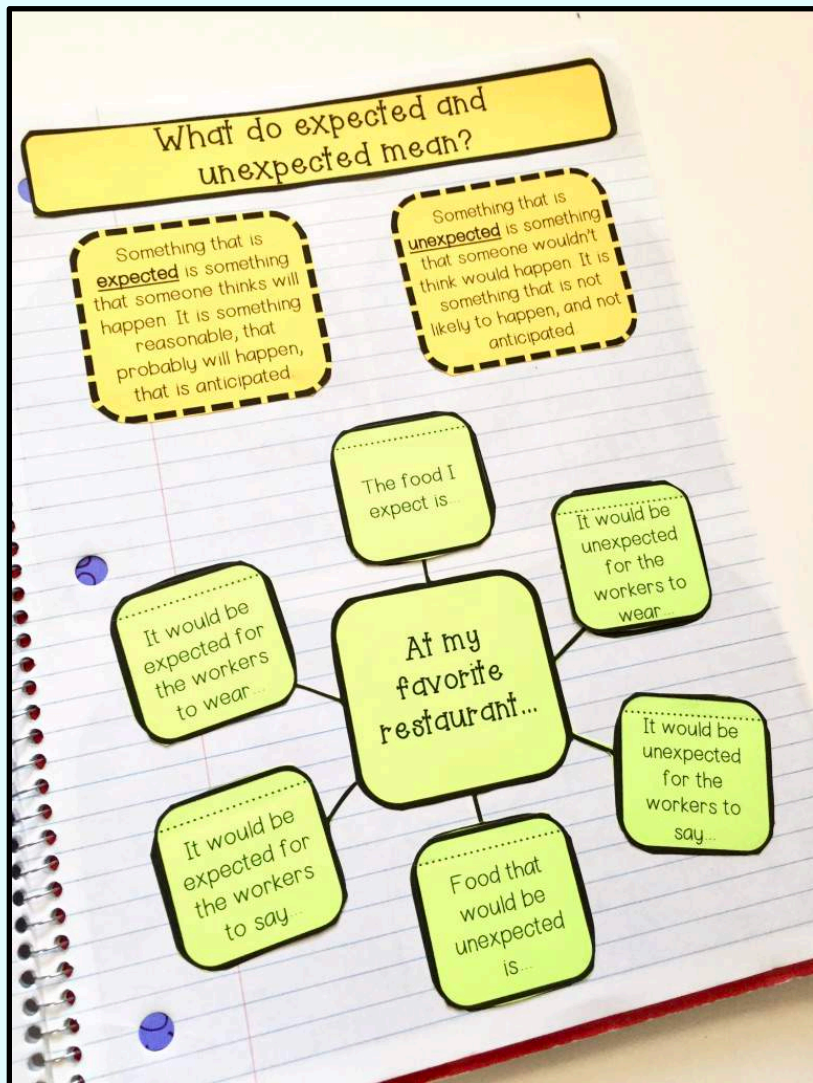 What do expected and
unexpected mean?
Something that is
expected is something
that someone thinks will
happen. It is something
reasonable, that
probably will happen,
that is anticipated.
Something that is
unexpected is something
that someone wouldn't
think would happen. It is
something that is not
likely to happen, and not
anticipated.
The food I
expect is...
It would be
unexpected
for the
workers to
wear...
It would be
expected for
the workers
to wear...
At my
favorite
restaurant...
It would be
unexpected
for the
workers to
say...
It would be
expected for
the workers
to say...
Food that
would be
unexpected
is...